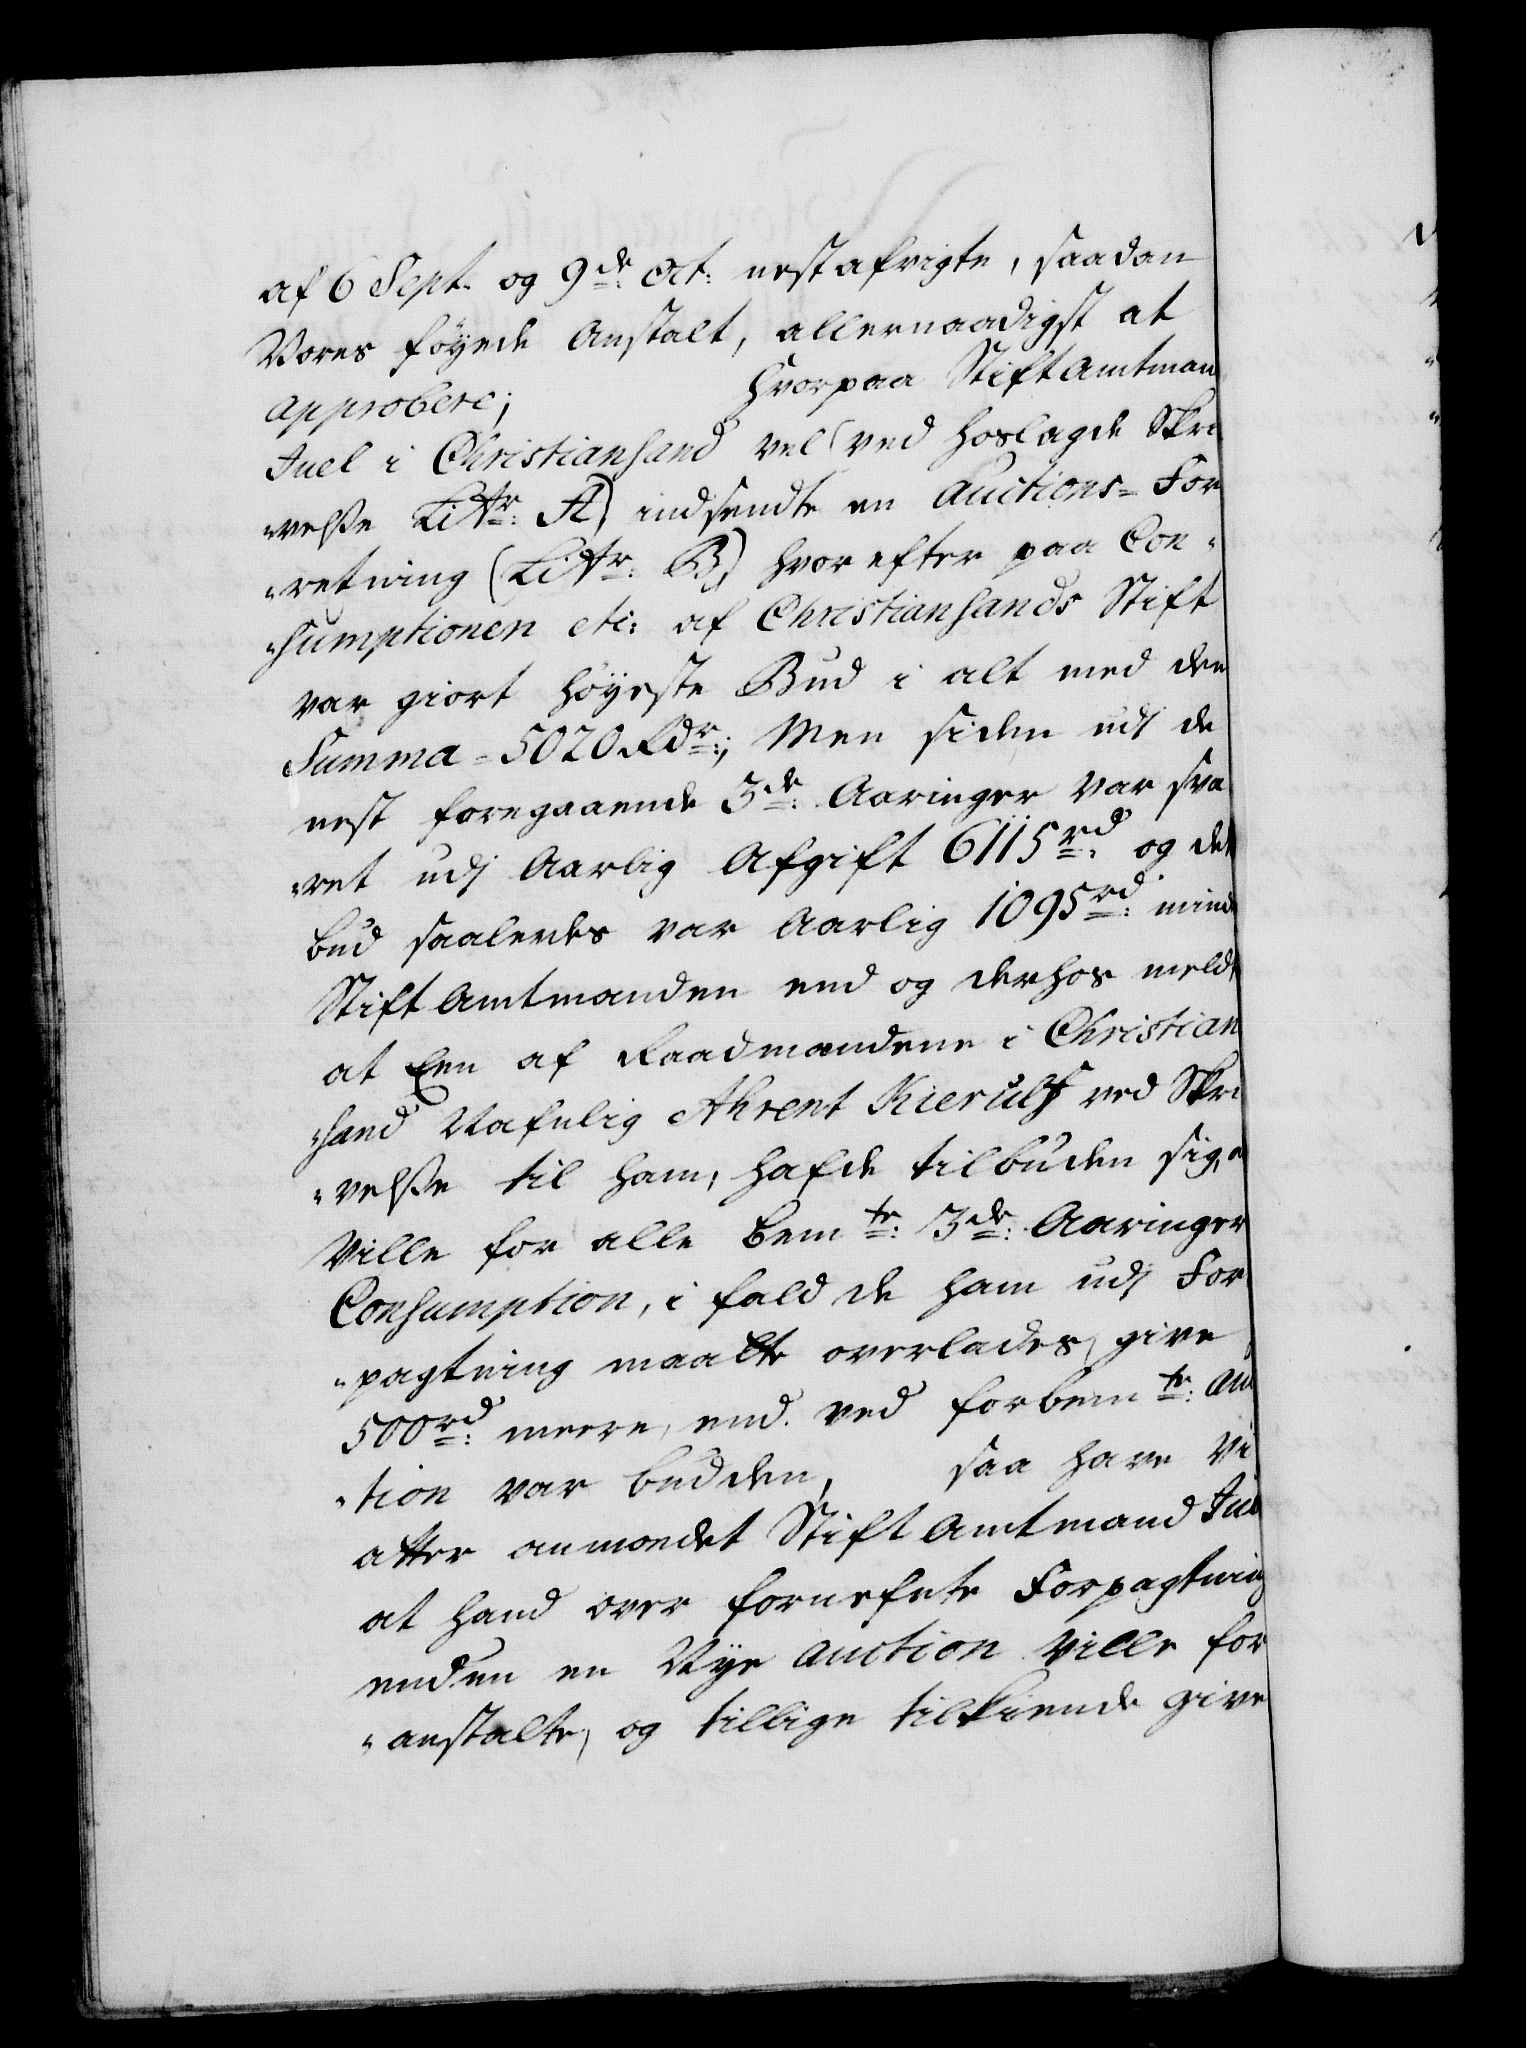 af 6 Sept. og 9de: Oct: nestafvigte, saadan
Vores føyede Anstalt, allernaadigst at
approbere; Hvorpaa Stiftamtmand
Juel i Christiansand vel (ved hoslagde Skri
"velße Littr: A) indsendte en Auctions=For
"retning (Littr: B) hvorefter paa Con"
"sumptionen etc: af Christiansands Stift
var giort høyeste Bud i alt med den
Summa=5020 Rdr:; Men siden udj de
nest foregaaende 3de: Aaringer var sva
"ret udj Aarlig Afgift 6115rd: og det
bud saaledes var Aarlig 1095rd: mind
Stiftamtmanden end og derhos meldt
at Een af Raadmændene i Christian
"sand Nafnlig Ahrent Kierulf ved Skri
"velße til ham, hafde tilbuden sig, a
Ville for alle bemte: 3de: Aaringer
Consumption, i fald de ham udj For
"pagtning maatte overlades, give
500rd: meere, end ved forbemte: Auc
"tion var budden, saa have Vi
atter anmodet Stiftamtmand Juel
at hand over fornefnte Forpagtning
endnu en Nye Auction Ville for
"anstalte, og tillige tilkiende give